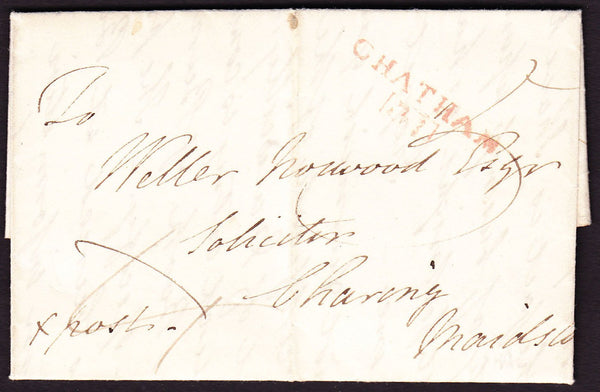 To
CHATHAM
Weller Norwood Esqr
Solicitor
Charing
x post.
Maidst